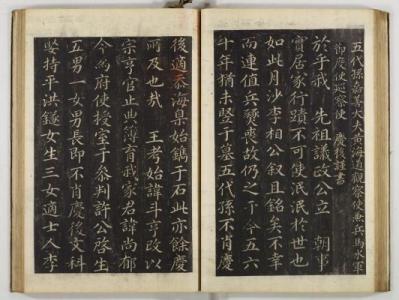 五代孫嘉善大夫黃海道觀察使兼兵馬水軍
節度使巡察使 慶後謹書
於乎我 先祖議政公立 朝事
實居家行蹟不可使泯泯於世也
如此月沙李相公叙且銘矣不幸
而連值兵燹喪故仍之于今五六
十年猶未竪于墓五代孫不肖慶
後適忝海臬始鐫于石此亦餘慶
所及也哉 王考始諱斗亨改以
宗亨官止典簿育我家君諱尚郁
今為府使授室于參判許公啓生
五男一女男長即不肖慶後文科
娶持平洪鐩女生三女適士人李